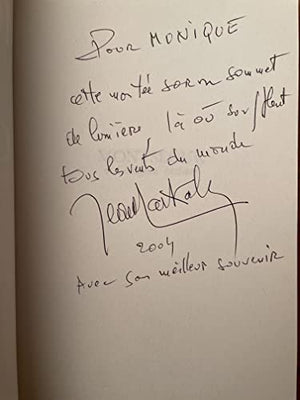 Pour MONIQUE
cette montée sur un sommet
de lumière, là où soufflent
tous les vents du monde
Jean
2004
Avec son meilleur souvenir